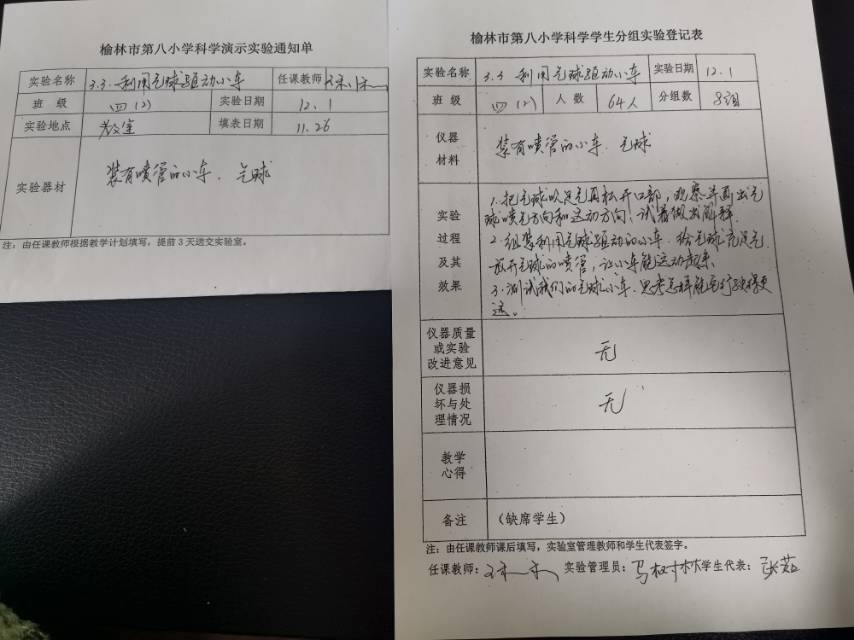 榆林市第八小学科学演示实验通知单
实验名称 3.3 利用气球驱动小车 任课教师
班 级 四(2) 实验日期 12.1
实验地点 教室 填表日期 11.26
实验器材 装有喷管的小车、气球
注：由任课教师根据教学计划填写，提前3天送交实验室。
榆林市第八小学科学学生分组实验登记表
实验名称 3.3 利用气球驱动小车 实验日期 12.1
班 级 四(2) 人 数 64人 分组数 8组
仪器
材料
装有喷管的小车、气球
实验
过程
及其
效果
1.把气球吹足气再松开口部，观察并画出气
球喷气方向和运动方向！试着做出解释.
2.组装利用气球驱动的小车.给气球充足气
放开气球的喷管，让小车能运动起来.
3.测试我们的气球小车.思考怎样能
远。
仪器质量
或实验
改进意见
无
仪器损
坏与处
理情况
无
教学
心得
备注 （缺席学生）
注：由任课教师课后填写，实验室管理教师和学生代表签字。
任课教师： 实验管理员： 学生代表：